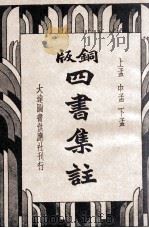 銅版
四書集註
上孟 中孟 下孟
大達圖書供應社刊行